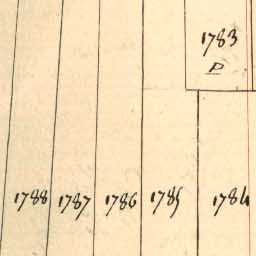 1783
P
1788 1787 1786 1785 1784